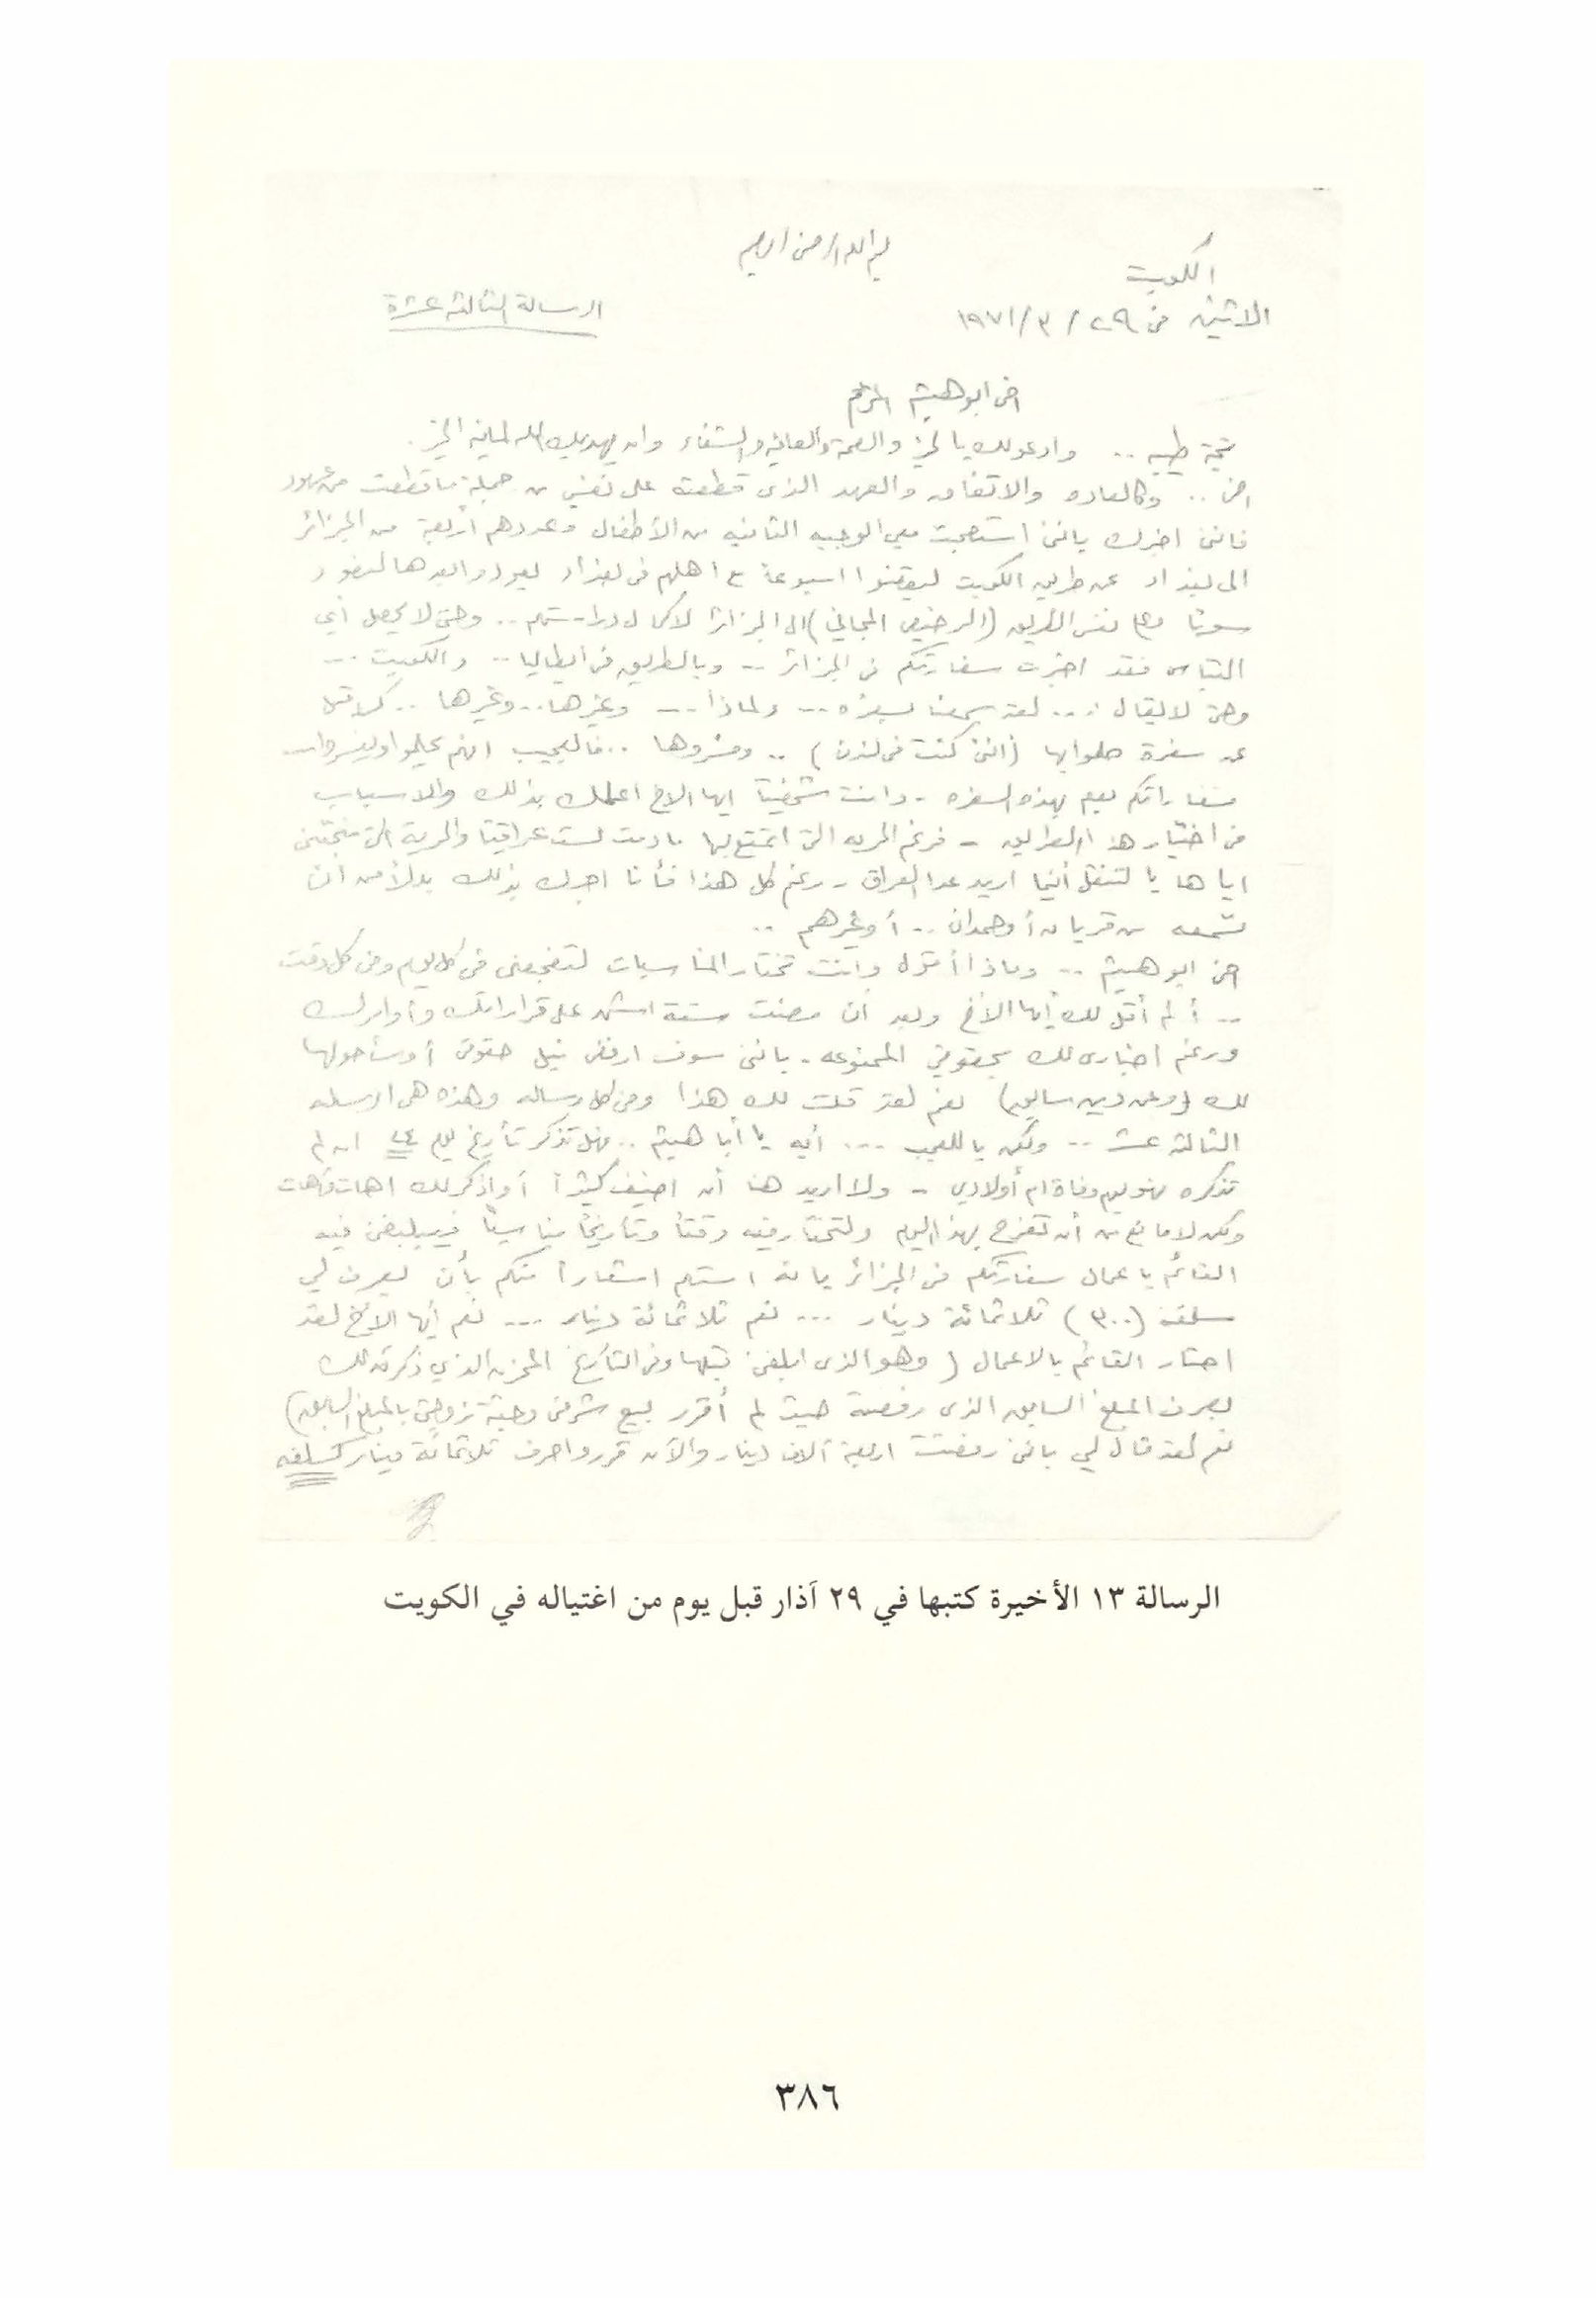 بسم الله الرحمن الرحيم
الكويت
الاثنين في ٢٩/٣/١٩٧١
الرسالة الثالثة عشرة
اخي ابو هيثم المحترم
تحية طيبه .. وادعو لك بالخير والصحة والعافية والشفاء وان يهديك الله لما فيه الخير .
اخي .. وكالعاده والاتفاق والعهد الذي قطعته على نفسي من جملة ما قطعت من عهود
فانني اخبرك بانني استصحبت معي الوجبه الثانيه من الأطفال وعددهم أربعة من الجزائر
الى بغداد عن طريق الكويت ليقضوا اسبوعاً مع اهلهم في بغداد ليعودوا بعدها لنعود
سويا وعلى نفس الطريق (الرخيص المجاني) الى الجزائر لاكمال دراستهم .. وحتى لا يحصل أي
التباس فقد اخبرت سفارتكم في الجزائر .. وبالطريق في ايطاليا .. والكويت ...
وحتى لا يقال : ... لقد سمعنا بسفره ... ولماذا ... وغيرها .. وغيرها .. كما قيل
عن سفرة حلموا بها (انني كنت في لندن) .. وفسروها .. فالعجيب انهم يحلموا ويفسروا ..
سفاراتكم تعلم بهذه السفره . وانت شخصياً ايها الاخ اعلمك بذلك والاسباب
في اختيار هذا الطريق - فرغم الحريه التي اتمتع بها ما دمت لست عراقيا والحرية التي منحتني
اياها بالتنقل أينما اريد عدا العراق - رغم كل هذا فأنا اخبرك بذلك بدلاً من ان
تسمعه من قريان أو حمدان .. أو غيرهم ..
اخي ابو هيثم .. وماذا أقول وانت تختار المناسبات لتفجعني في كل يوم وفي كل وقت
.. ألم أقل لك أيها الأخ وبعد أن مضت ستة اشهر على قراراتك وأوامرك
ورغم اخباري لك بحقوقي الممنوعه . بانني سوف ارفض نيل حقوقي أو سأحولها
لك (وعن دين سابق) نعم لقد قلت لك هذا وفي كل رساله وهذه هي الرساله
الثالثة عشر .. ولكن يا للعجب ... أيه يا أبا هيثم .. فهل تذكر تأريخ يوم ٢٤ ان لم
تذكره فهو يوم وفاة ام أولادي - ولا اريد هنا أن اضيف كثيراً أو اذكر لك اهات وآهات
ولكن لا مانع من أن تفرح بهذا اليوم ولتختار فيه وقتاً وتاريخاً مناسباً فيبلغني فيه
القائم باعمال سفارتكم في الجزائر بانه استلم اشعاراً منكم بأن يصرف لي
سلفة (٣٠٠) ثلاثمائة دينار ... نعم ثلاثمائة دينار ... نعم أيها الأخ لقد
احتار القائم بالاعمال (وهو الذي ابلغني قبلها وفي التأريخ المحزن الذي ذكرته لك
بصرف المبلغ السابق الذي رفضته حيث لم أقرر بيع شرفي وجثة زوجتي بالمبلغ السابق)
نعم لقد قال لي بانني رفضت اربعة آلاف دينار والآن قرروا صرف ثلاثمائة دينار كسلفه
الرسالة ١٣ الأخيرة كتبها في ٢٩ آذار قبل يوم من اغتياله في الكويت
٣٨٦